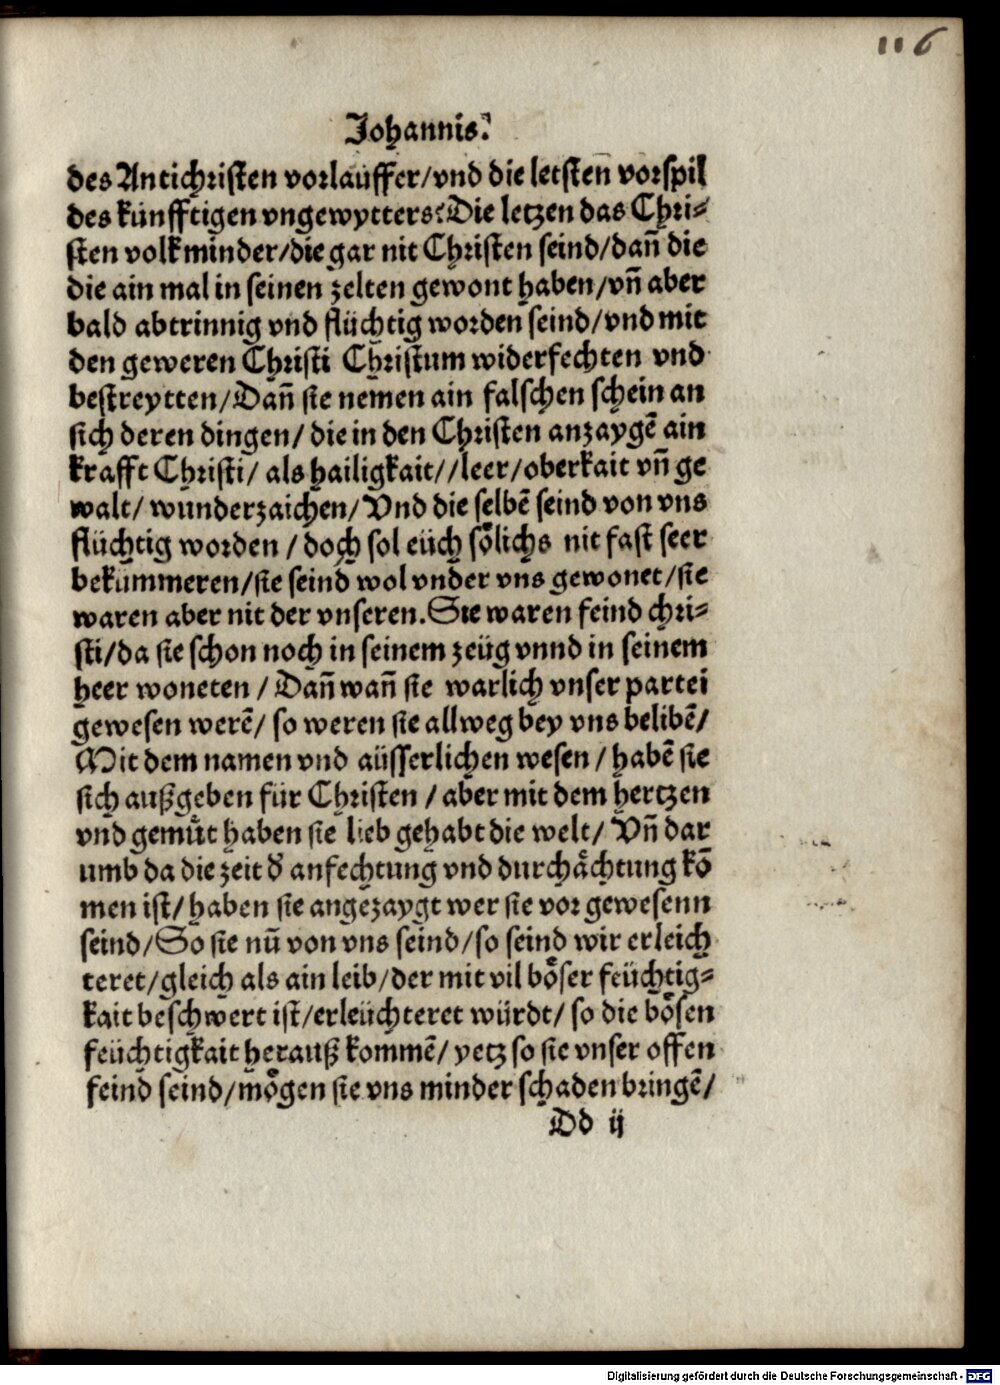 116
Johannis.
des Antichristen vorlauffer/vnd die letsten vorspil
des kunfftigen vngewytters: Die letzen das Chri⸗
sten volk minder/die gar nit Christen seind/dañ die
die ain mal in seinen zelten gewont haben/vñ aber
bald abtrinnig vnd flüchtig worden seind/vnd mit
den geweren Christi Christum widerfechten vnd
bestreytten/Dañ sie nemen ain falschen schein an
sich deren dingen/ die in den Christen anzaygē ain
krafft Christi/ als hailigkait//leer/oberkait vñ ge
walt/ wunderzaichen/ Vnd die selbē seind von vns
flüchtig worden / doch sol eüch soͤlichs nit fast seer
bekümmeren/sie seind wol vnder vns gewonet/sie
waren aber nit der vnseren. Sie waren feind chri⸗
sti/da sie schon noch in seinem zeüg vnnd in seinem
heer woneten / Dañ wañ sie warlich vnser partei
gewesen werē/ so weren sie allweg bey vns belibē/
Mit dem namen vnd aüsserlichen wesen / habē sie
sich außgeben für Christen / aber mit dem hertzen
vnd gemuͤt haben sie lieb gehabt die welt/ Vñ dar
umb da die zeit d̕ anfechtung vnd durchaͤchtung kō
men ist/ haben sie angezaygt wer sie vor gewesenn
seind/So sie nū von vns seind/so seind wir erleich
teret/gleich als ain leib/der mit vil boͤser feüchtig⸗
kait beschwert ist/erleüchteret würdt/ so die boͤsen
feüchtigkait herauß kommē/ yetz so sie vnser offen
feind seind/moͤgen sie vns minder schaden bringē/
Dd ij
Digitalisierung gefördert durch die Deutsche Forschungsgemeinschaft - DFG